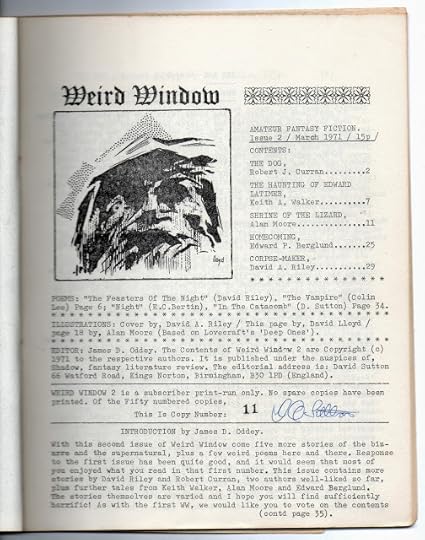 Weird Window
AMATEUR FANTASY FICTION.
Issue 2 / March 1971 / 15p /
CONTENTS:
THE DOG,
Robert J. Curran.........2
THE HAUNTING OF EDWARD
LATIMER,
Keith A. Walker..........7
SHRINE OF THE LIZARD,
Alan Moore..............11
HOMECOMING,
Edward P. Berglund......25
CORPSE-MAKER,
David A. Riley..........29
lloyd
POEMS: "The Feasters Of The Night" (David Riley), "The Vampire" (Colin
Lee) Page 6; "Night" (E.C.Bertin), "In The Catacomb" (D. Sutton) Page 34.
ILLUSTRATIONS: Cover by, David A. Riley / This page by, David Lloyd /
page 18 by, Alan Moore (Based on Lovecraft's 'Deep Ones').
EDITOR: James D. Oddey. The Contents of Weird Window 2 are Copyright (c)
1971 to the respective authors. It is published under the auspices of,
Shadow, fantasy literature review. The editorial address is: David Sutton
66 Watford Road, Kings Norton, Birmingham, B30 1PD (England).
WEIRD WINDOW 2 is a subscriber print-run only. No spare copies have been
printed. Of the Fifty numbered copies,
This Is Copy Number: 11
INTRODUCTION by James D. Oddey.
With this second issue of Weird Window come five more stories of the biz-
arre and the supernatural, plus a few weird poems here and there. Response
to the first issue has been quite good, and it would seem that most of
you enjoyed what you read in that first number. This issue contains more
stories by David Riley and Robert Curran, two authors well-liked so far,
plus further tales from Keith Walker, Alan Moore and Edward Berglund.
The stories themselves are varied and I hope you will find sufficiently
horrific! As with the first WW, we would like you to vote on the contents
(contd page 35).